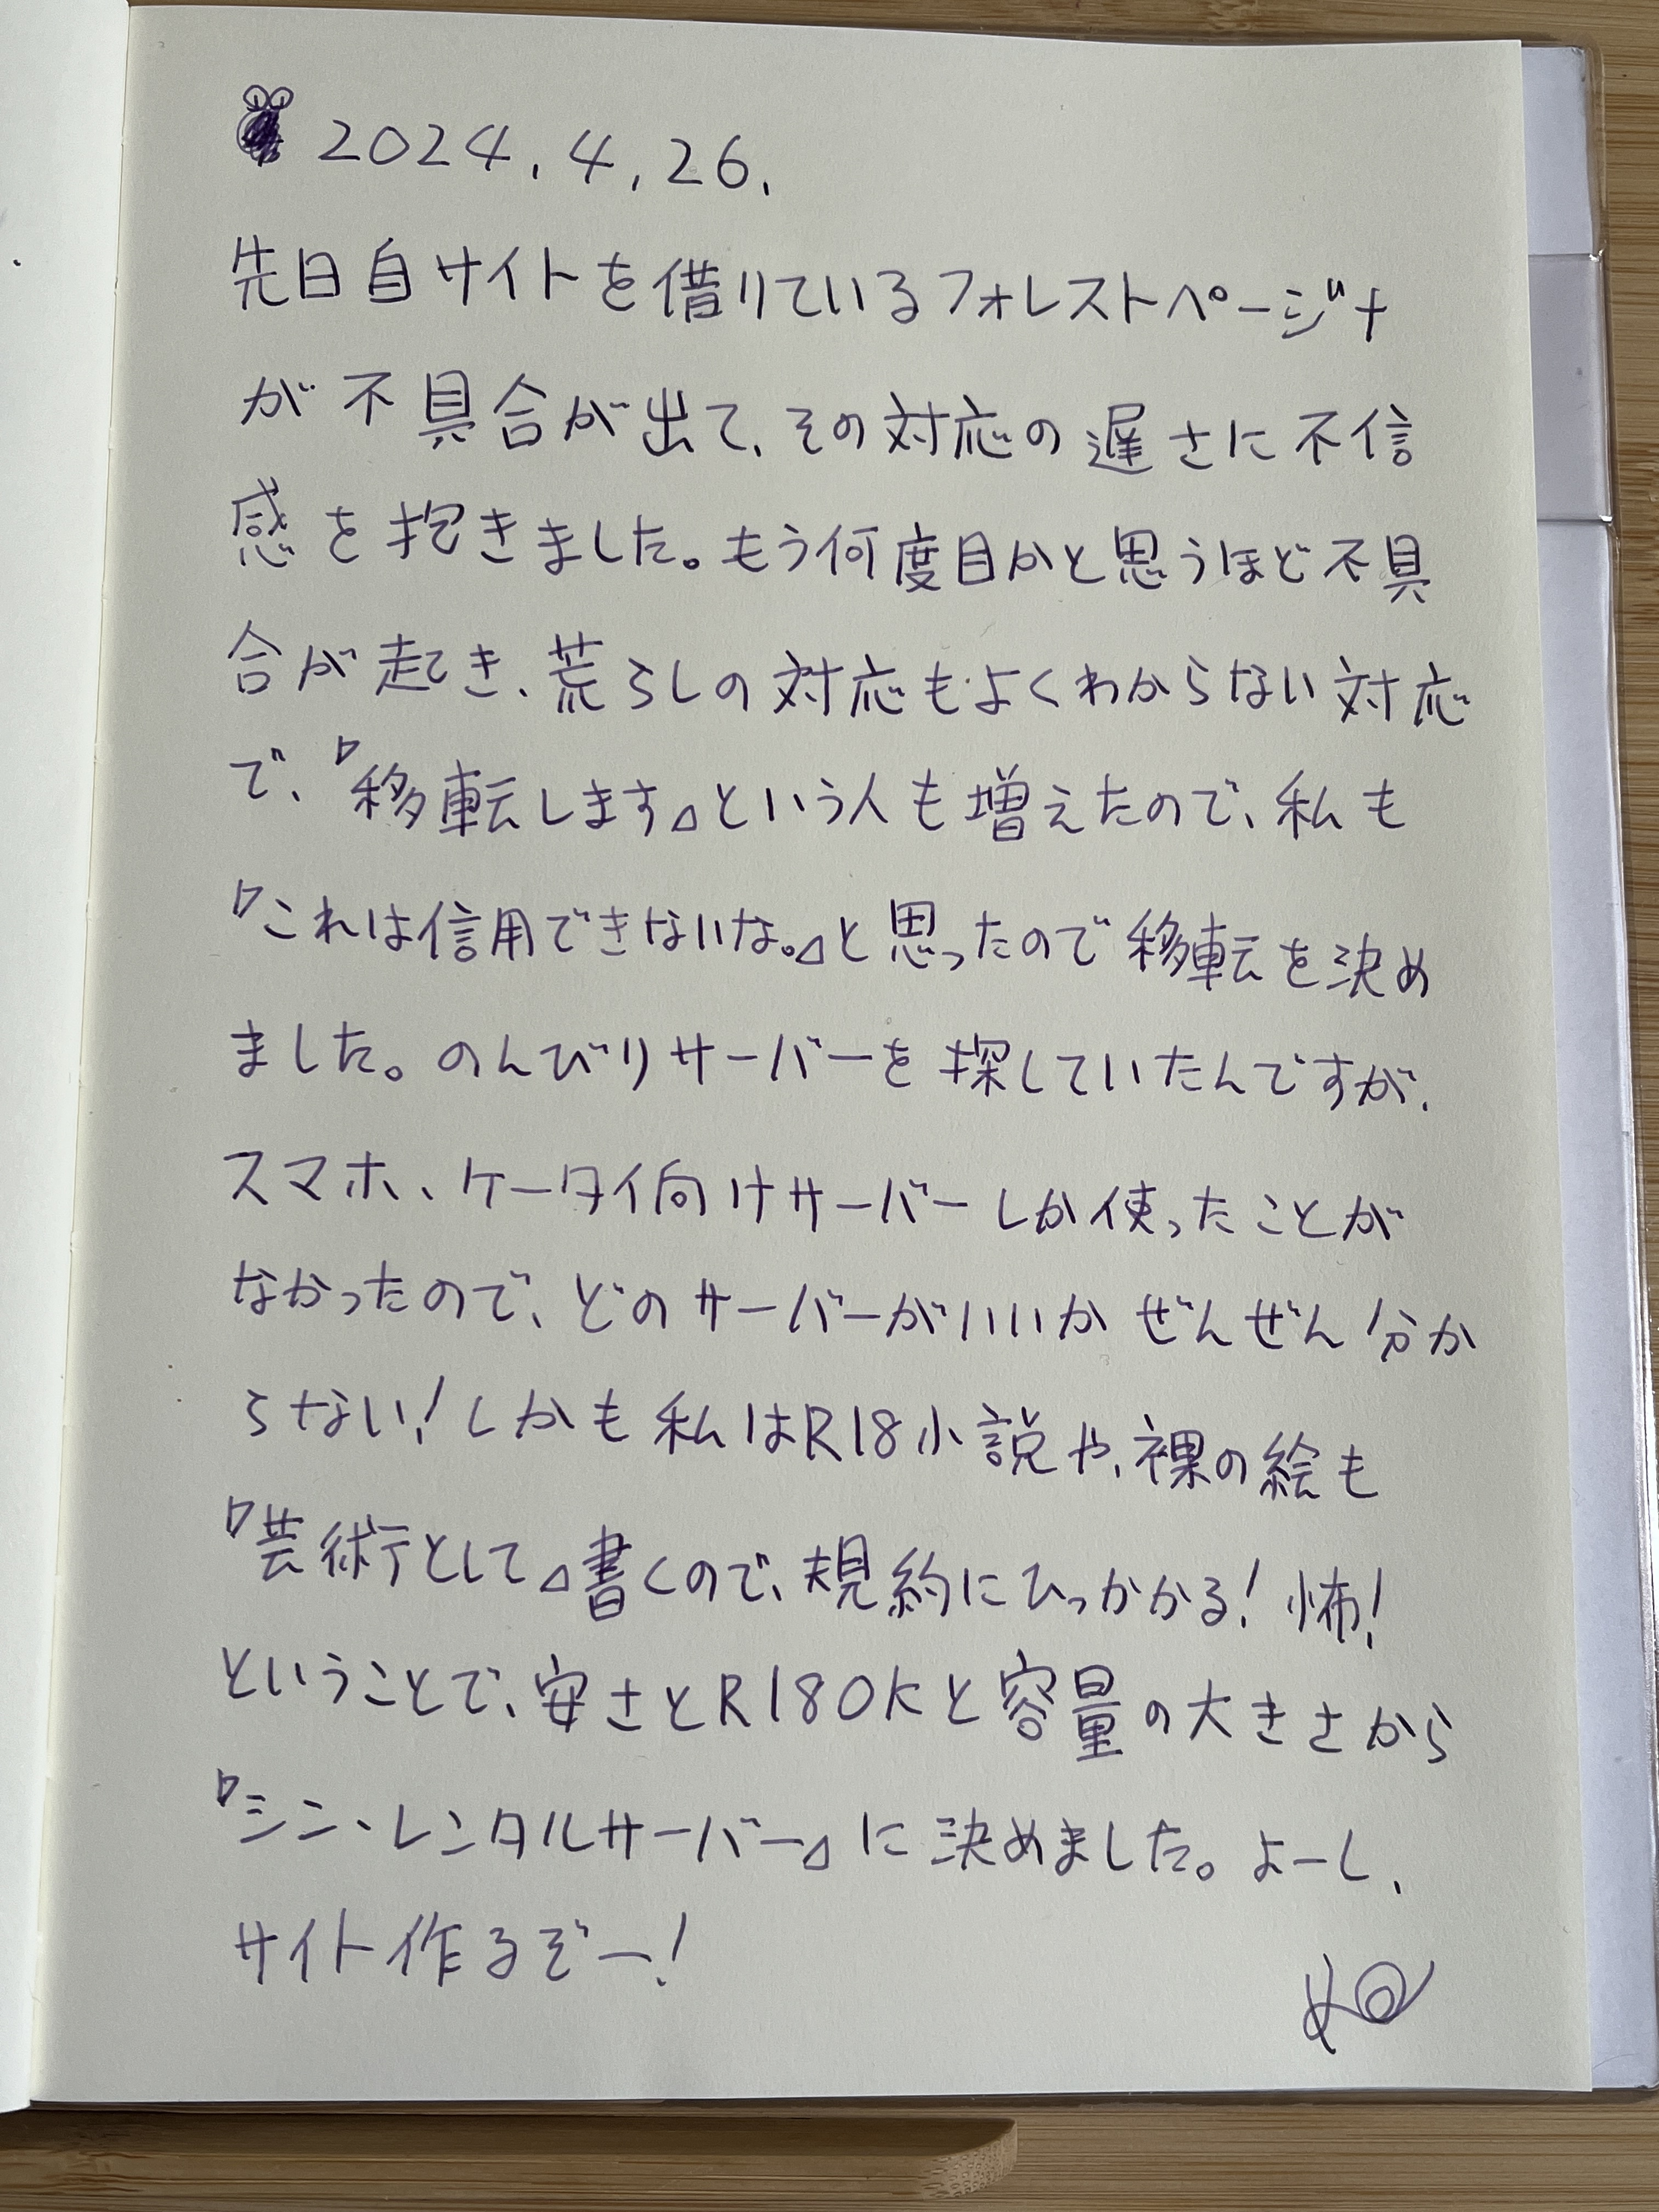 2024.4.26.
先日自サイトを借りているフォレストページ+
が不具合が出て、その対応の遅さに不信
感を抱きました。もう何度目かと思うほど不具
合が起き、荒らしの対応もよくわからない対応
で、『移転します』という人も増えたので、私も
『これは信用できないな。』と思ったので移転を決め
ました。のんびりサーバーを探していたんですが、
スマホ、ケータイ向けサーバーしか使ったことが
なかったので、どのサーバーがいいかぜんぜん分か
らない!しかも私はR18小説や、裸の絵も
『芸術として』書くので、規約にひっかかる!怖!
ということで、安さとR18OKと容量の大きさから
『シン・レンタルサーバー』に決めました。よーし、
サイト作るぞー!